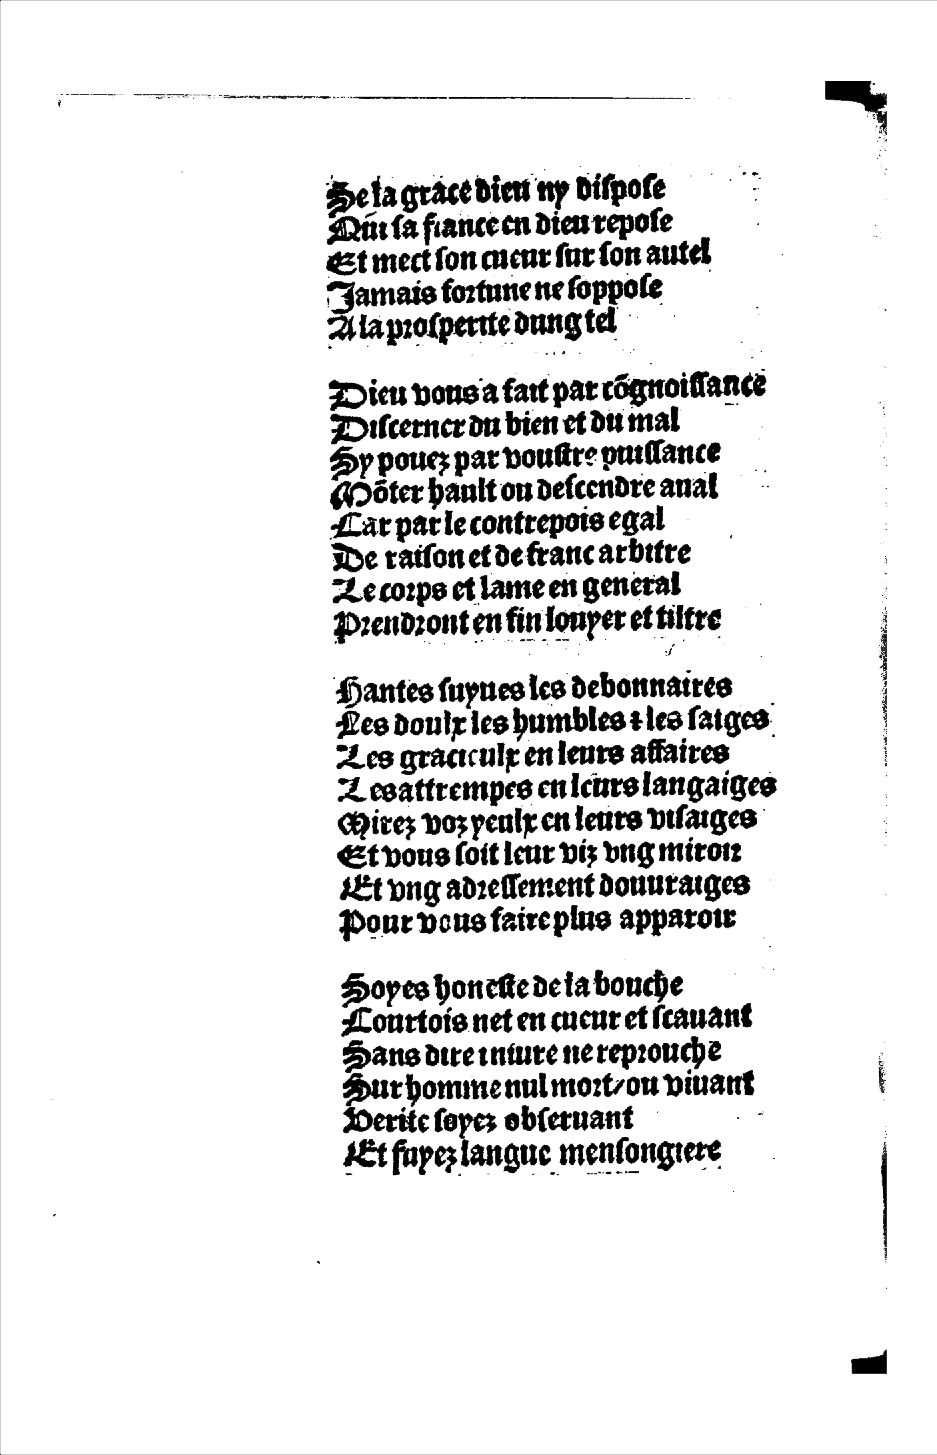 Se la grace dieu ny dispoſe
Qui ſa fiance en dieu repoſe
Et mect ſon cueur ſur ſon autel
Jamais foꝛtune ne ſoppoſe
A la pꝛoſperite dung tel
Dieu vous a fait par cõgnoiſſance
Diſcerner du bien et du mal
Sy pouez par vouſtre puiſſance
Mõter hault ou deſcendre aual
Car par le contrepois egal
De raiſon et de franc arbitre
Le coꝛps et lame en general
Pꝛendꝛont en fin louyer et tiltre
Hantes ſuyues les debonnaires
Les doulx les humbles ⁊ les ſaiges
Les gracieulx en leurs affaires
Les attrempes en leurs langaiges
Mirez voz yeulx en leurs viſaiges
Et vous ſoit leur viz vng miroir
Et vng adꝛeſſement douuraiges
Pour vous faire plus apparoir
Soyes honeſte de la bouche
Courtois net en cueur et ſcauant
Sans dire iniure ne repꝛouche
Sur homme nul moꝛt/ou viuant
Verite ſoyez obſeruant
Et fuyez langue menſongiere